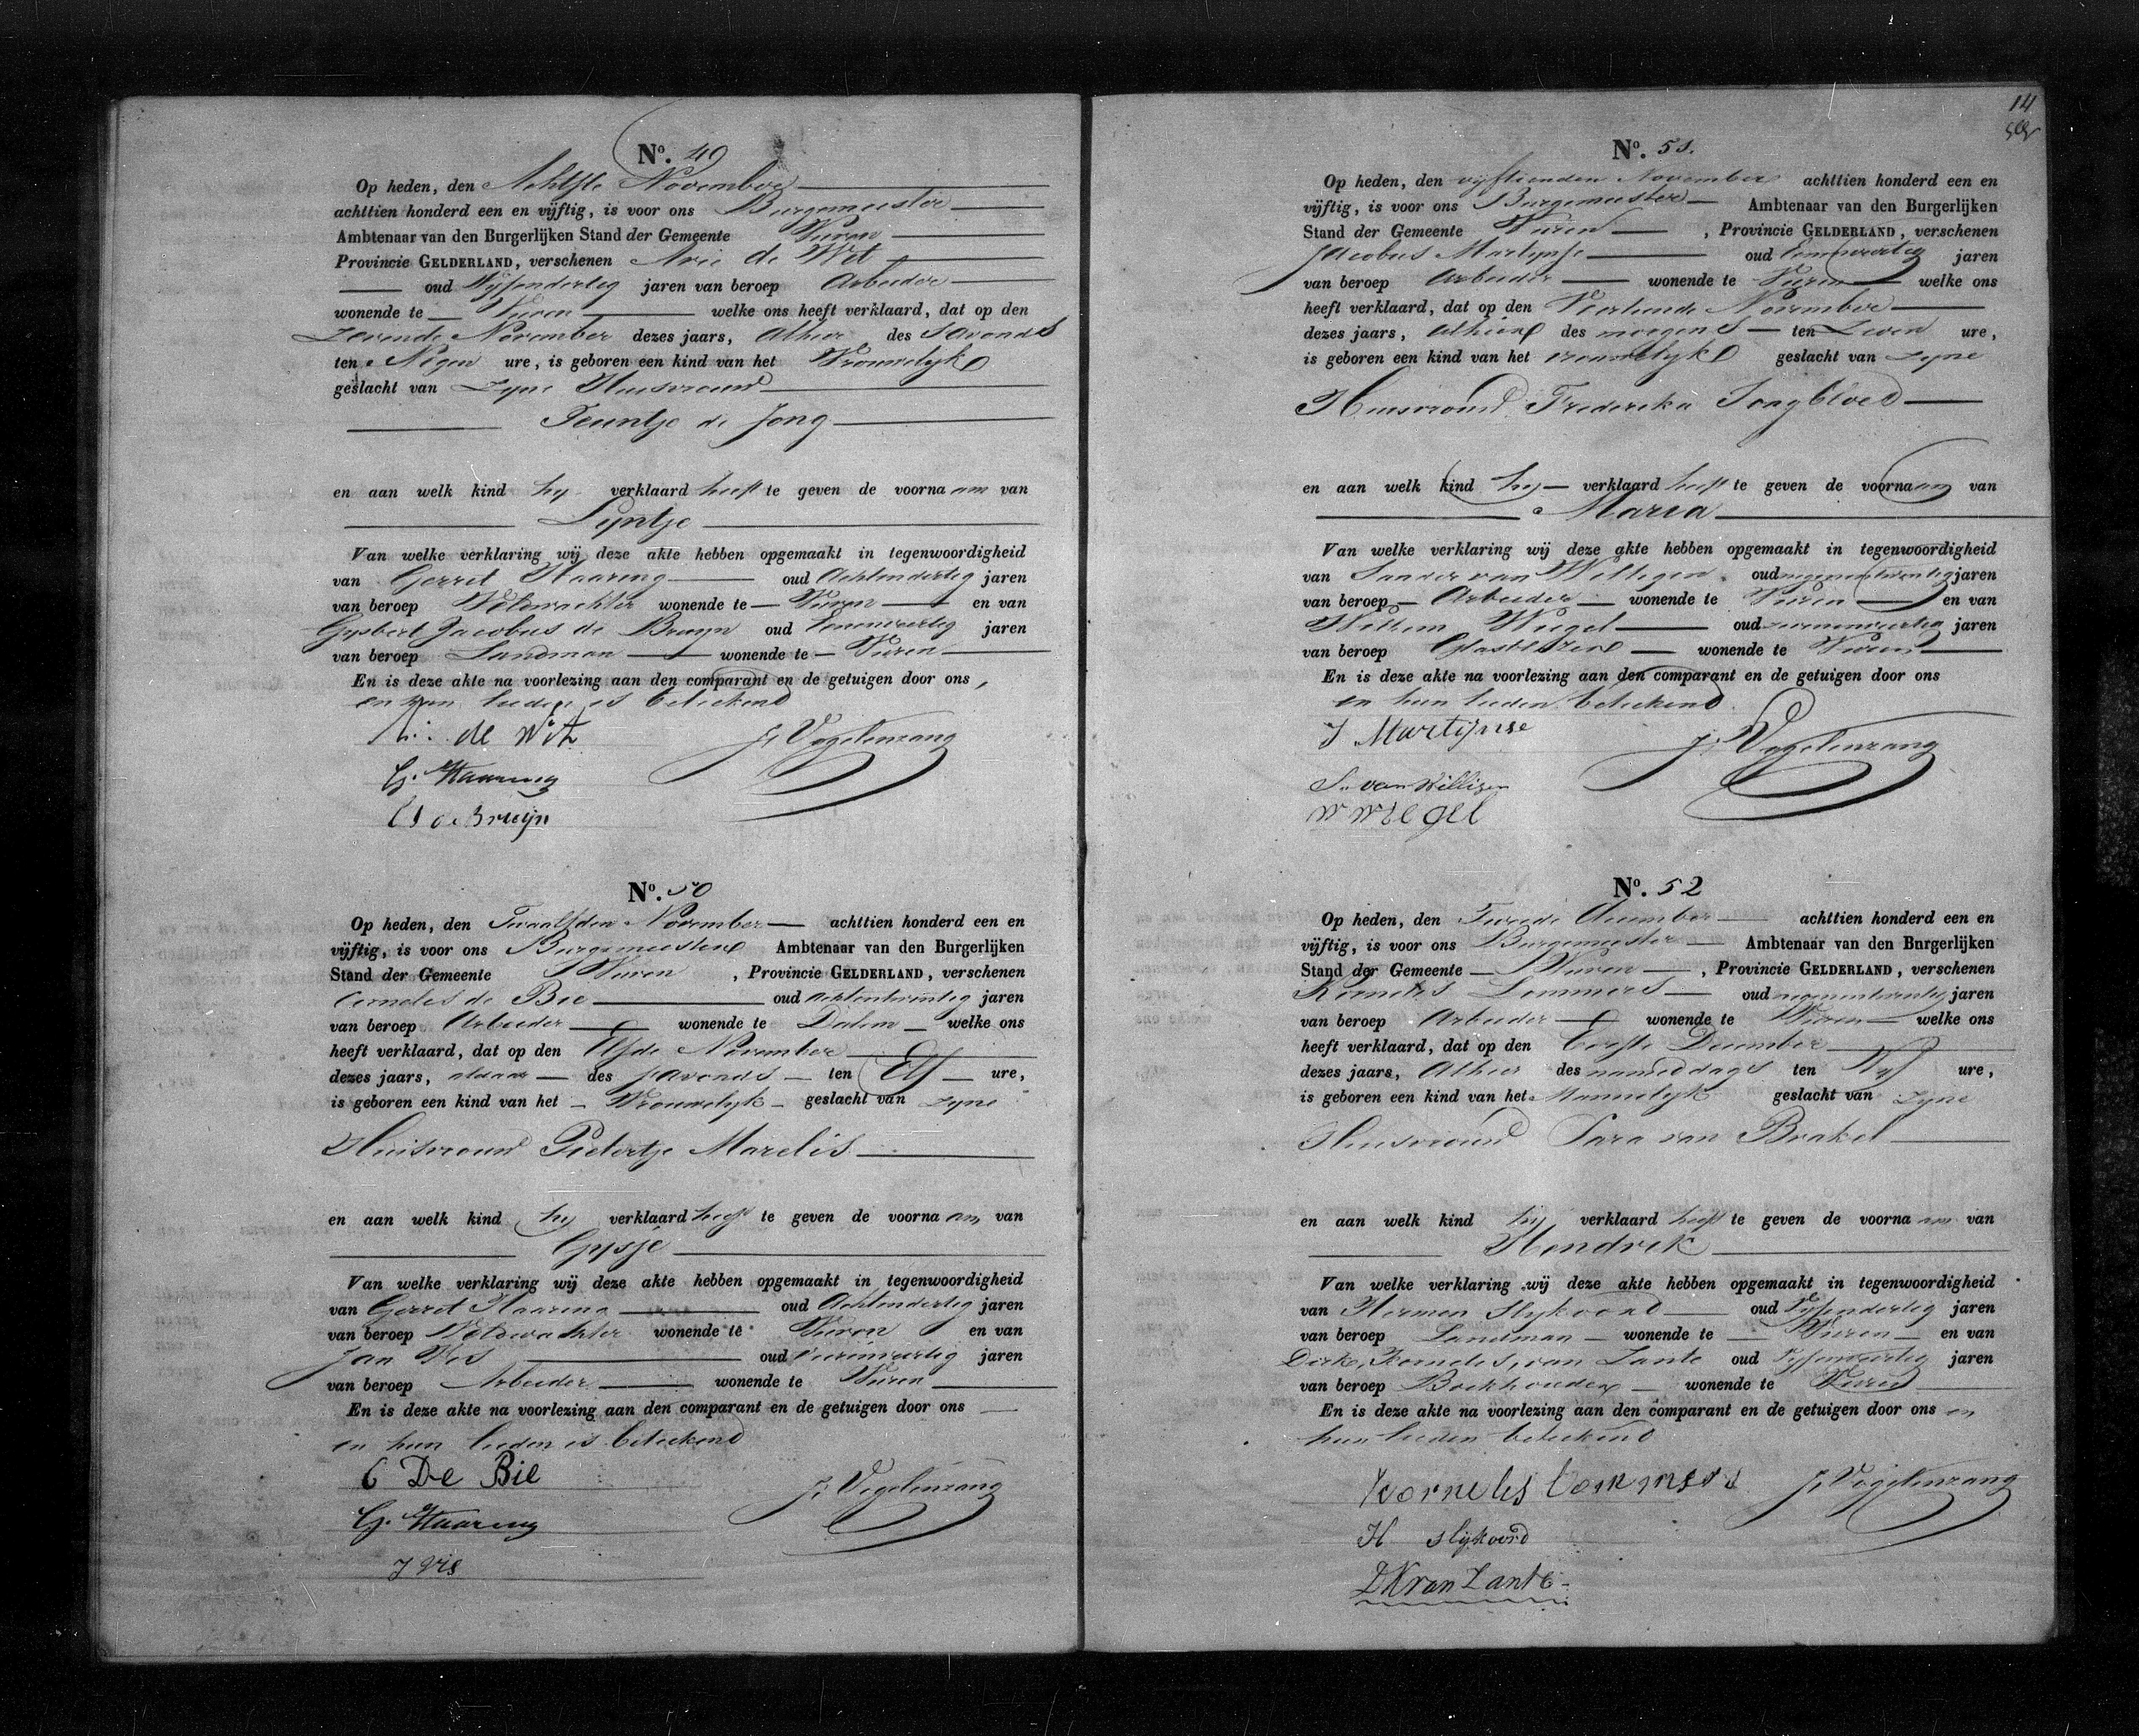 No. 49
Op heden, den Achtste November
achttien honderd een en vijftig, is voor ons Burgemeester
Ambtenaar van den Burgerlijken Stand der Gemeente Vuren
Provincie GELDERLAND, verschenen Arie de Wit
oud Vyfendertig jaren van beroep Arbeider
wonende te Vuren welke ons heeft verklaard, dat op den
Zevende November dezes jaars, Alhier des S'avonds
ten Negen ure, is geboren een kind van het Vrouwelyke
geslacht van Zyne Huisvrouw
Teuntje de Jong
en aan welk kind hy verklaard heeft te geven de voornaam van
Lyntje
Van welke verklaring wij deze akte hebben opgemaakt in tegenwoordigheid
van Gerret Haaring oud Achtendertig jaren
van beroep Veldwachter wonende te Vuren en van
Gysbert Jacobus de Bruyn oud Eenenveertig jaren
van beroep Landman wonende te Vuren
En is deze akte na voorlezing aan den comparant en de getuigen door ons,
en hun lieden is beteekend
de Wit J. Vogelenzang
G. Haaring
de Bruijn
No. 50
Op heden, den Twaalfden November achttien honderd een en
vijftig, is voor ons Burgemeester Ambtenaar van den Burgerlijken
Stand der Gemeente Vuren, Provincie GELDERLAND, verschenen
Cornelis de Bie oud achtentwintig jaren
van beroep Arbeider wonende te Dalem welke ons
heeft verklaard, dat op den Elfde November
dezes jaars, aldaar des s'avonds ten Elf ure,
is geboren een kind van het Vrouwelyk geslacht van Zyne
Huisvrouw Pietertje Marelis
en aan welk kind hy verklaard heeft te geven de voornaam van
Gysje
Van welke verklaring wij deze akte hebben opgemaakt in tegenwoordigheid
van Gerret Haaring oud Achtendertig jaren
van beroep Veldwachter wonende te Vuren en van
Jan Vis oud vierenveertig jaren
van beroep Arbeider wonende te Vuren
En is deze akte na voorlezing aan den comparant en de getuigen door ons
en hun lieden is beteekend
C De Bie J. Vogelenzang
G. Haaring
J Vis
14
No. 51.
Op heden, den vyftienden November achttien honderd een en
vijftig, is voor ons Burgemeester Ambtenaar van den Burgerlijken
Stand der Gemeente Vuren, Provincie GELDERLAND, verschenen
Jacobus Martynse oud Eenenveertig jaren
van beroep Arbeider wonende te Vuren welke ons
heeft verklaard, dat op den Veertiende November
dezes jaars, alhier des morgens ten Zeven ure,
is geboren een kind van het vrouwelyke geslacht van Zyne
Huisvrouw Frederika Jongbloed
en aan welk kind hy verklaard heeft te geven de voornaam van
Maria
Van welke verklaring wij deze akte hebben opgemaakt in tegenwoordigheid
van Sander van Willegen oud negenentwintig jaren
van beroep Arbeider wonende te Vuren en van
Willem Wiegel oud zevenenveertig jaren
van beroep Glasblazer wonende te Vuren
En is deze akte na voorlezing aan den comparant en de getuigen door ons
en hun lieden beteekend.
J Martijnse J. Vogelenzang
S. van Willigen
W Wiegel
No. 52
Op heden, den Tweede December achttien honderd een en
vijftig, is voor ons Burgemeester Ambtenaar van den Burgerlijken
Stand der Gemeente Vuren, Provincie GELDERLAND, verschenen
Kornelis Lommers oud negenentwintig jaren
van beroep Arbeider wonende te Vuren welke ons
heeft verklaard, dat op den Eerste December
dezes jaars, Alhier des nameddags ten Vyf ure,
is geboren een kind van het Mannelyk geslacht van Zyne
Huisvrouw Sara van Brakel
en aan welk kind hy verklaard heeft te geven de voornaam van
Hendrik
Van welke verklaring wij deze akte hebben opgemaakt in tegenwoordigheid
van Herman Slykoord oud Vyfendertig jaren
van beroep Landman wonende te Vuren en van
Dirk, Kornelis, van Zante oud Vyfenveertig jaren
van beroep Boekhouder wonende te Vuren
En is deze akte na voorlezing aan den comparant en de getuigen door ons en
hun lieden beteekend
Kornelis Lommers J. Vogelenzang
H Slijkoord
D K van Zante